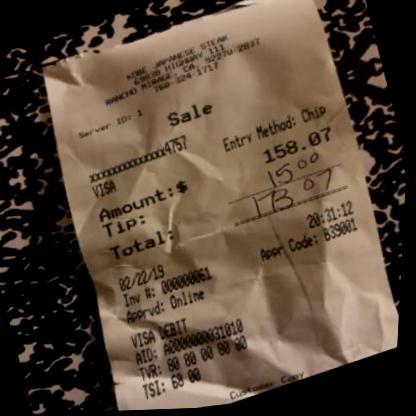 KOBE JAPANESE STEAK
69838 HIGHWAY 111
RANCHO MIRAGE, CA. 92270-2837
760-324-1717
Server ID: 1
Sale
xxxxxxxxxxxx4757
VISA Entry Method: Chip
Amount:$ 158.07
Tip: 15.00
Total: 173.07
02/22/19 20:31:12
Inv #: 000000061 Appr Code: B39001
Apprvd: Online
VISA DEBIT
AID: A0000000031010
TVR: 80 80 00 80 00
TSI: 68 00
Customer Copy